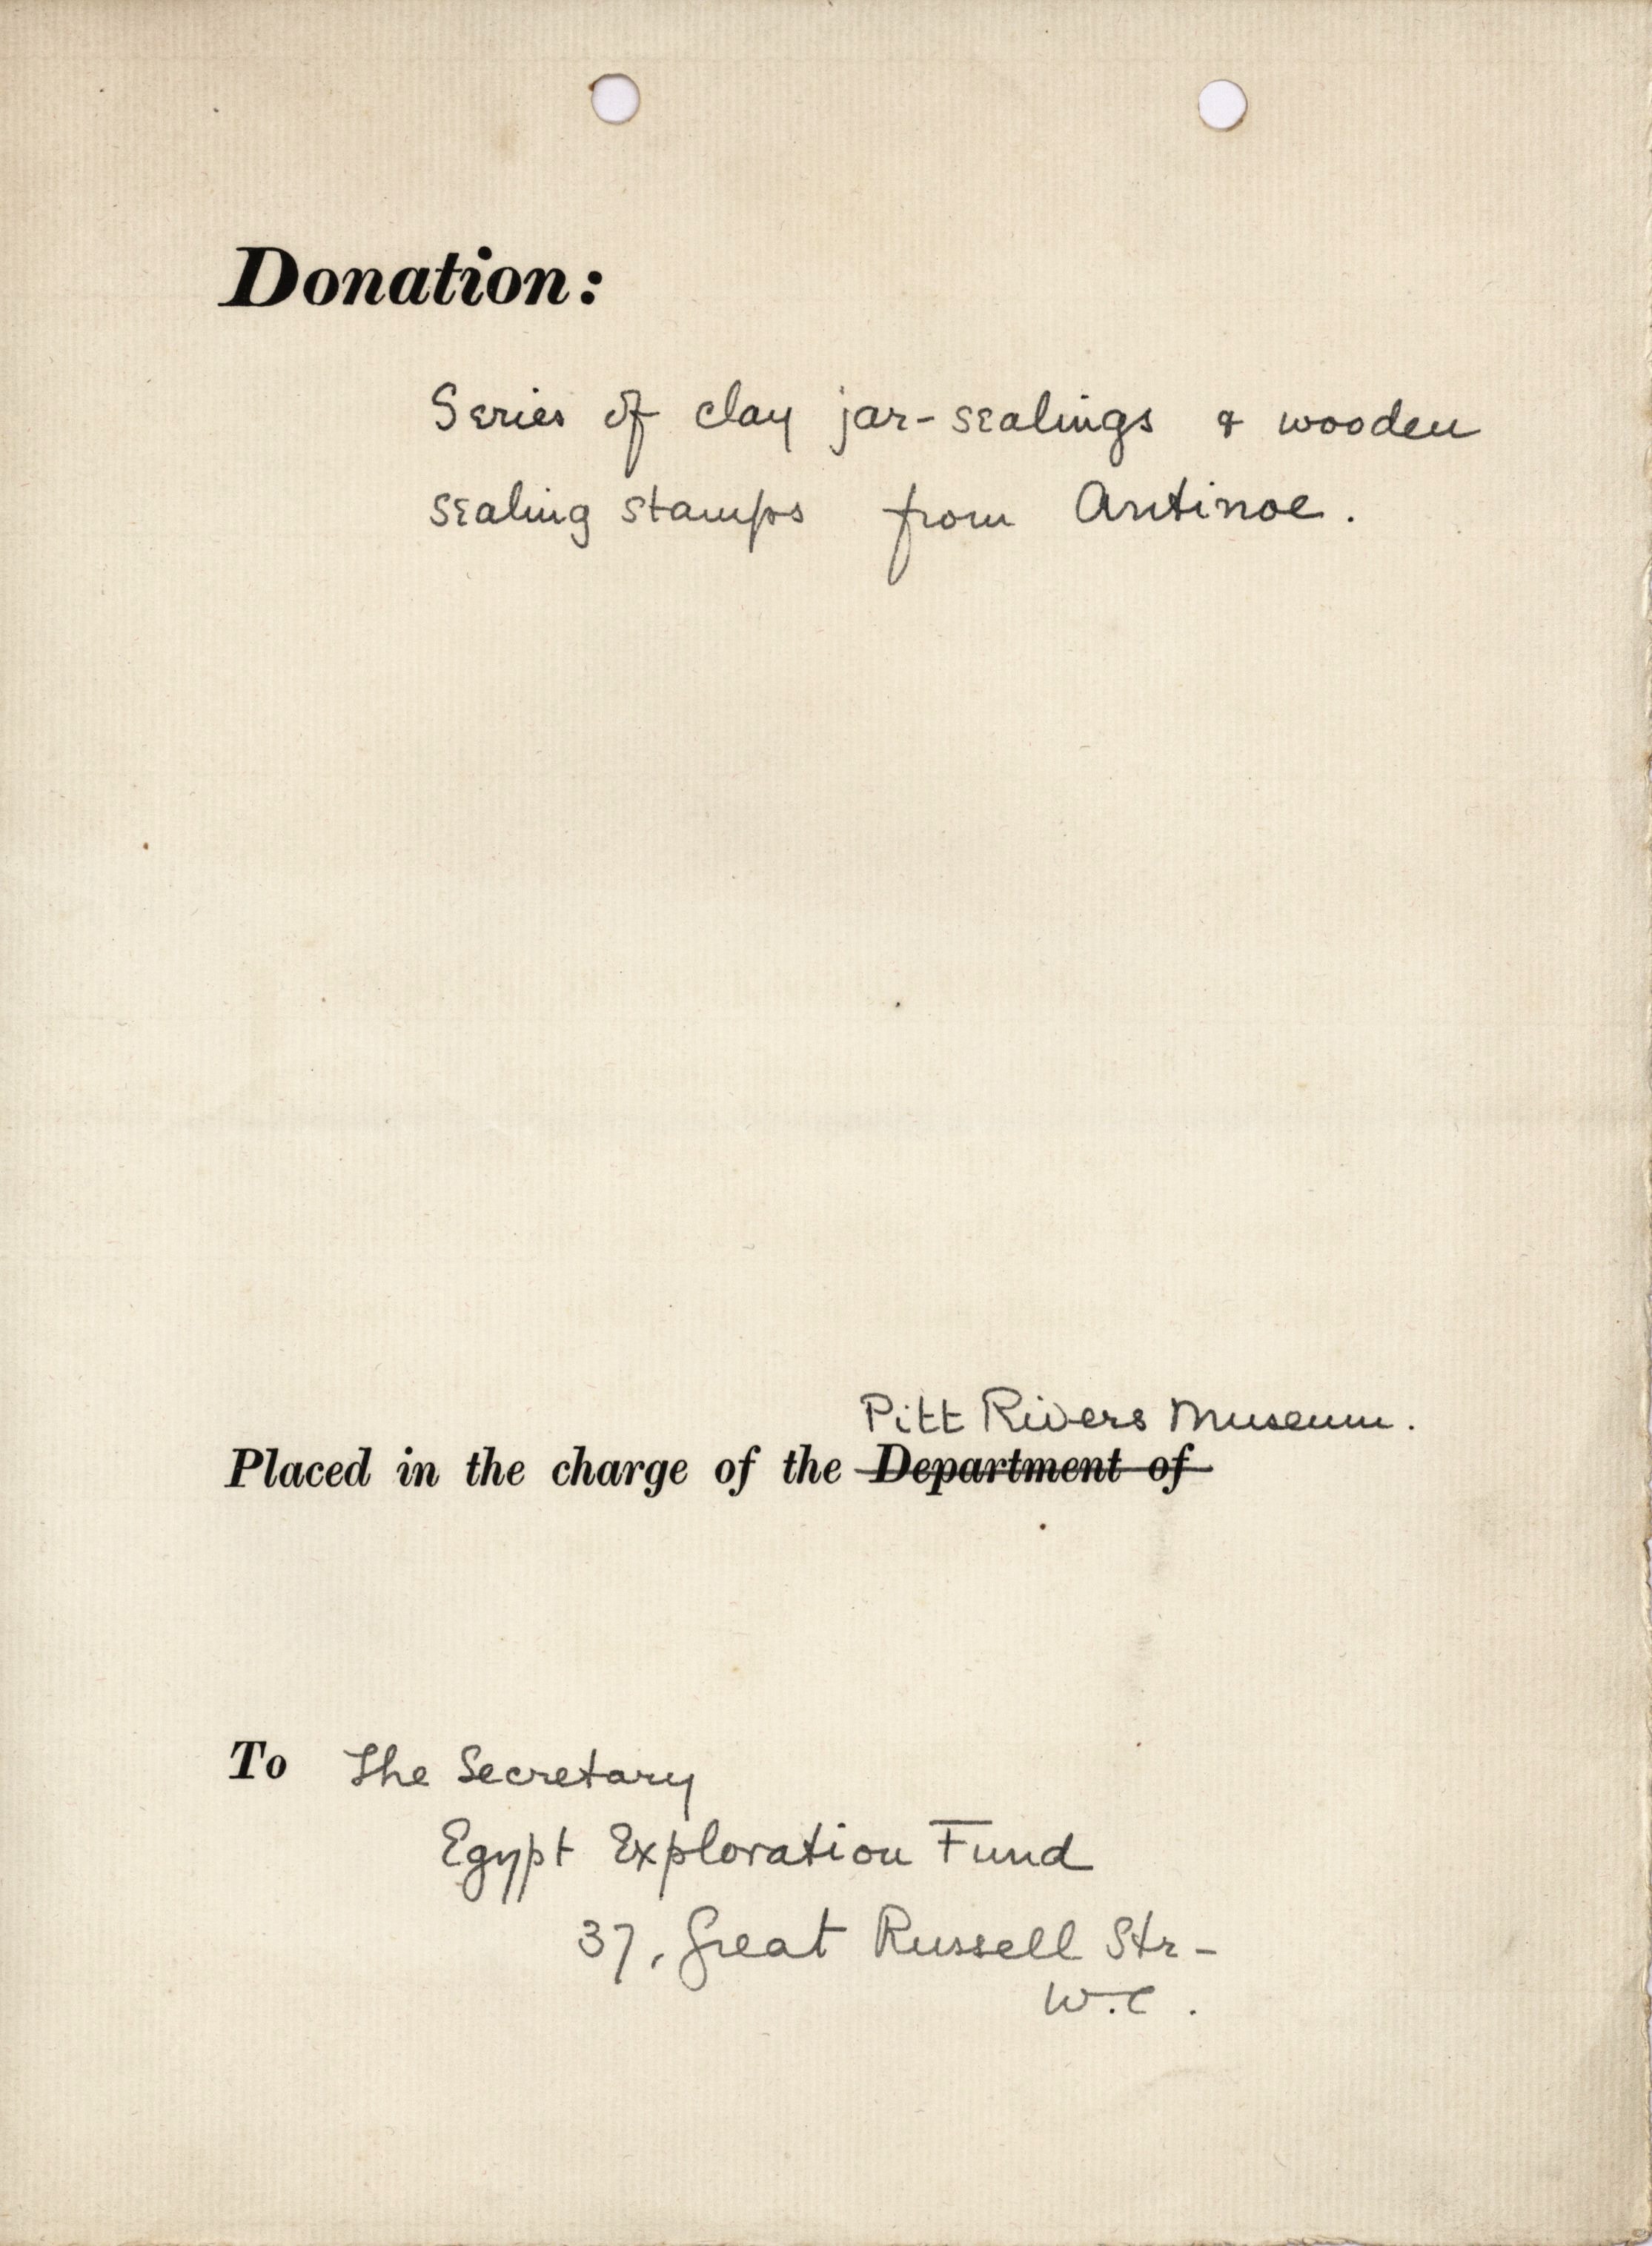 Donation:
Series of clay jar-sealings & wooden
sealing stamps from Antinoe.
Pitt Rivers Museum.
Placed in the charge of the Department of
To The Secretary
Egypt Exploration Fund
37, Great Russell Str-
W.C.